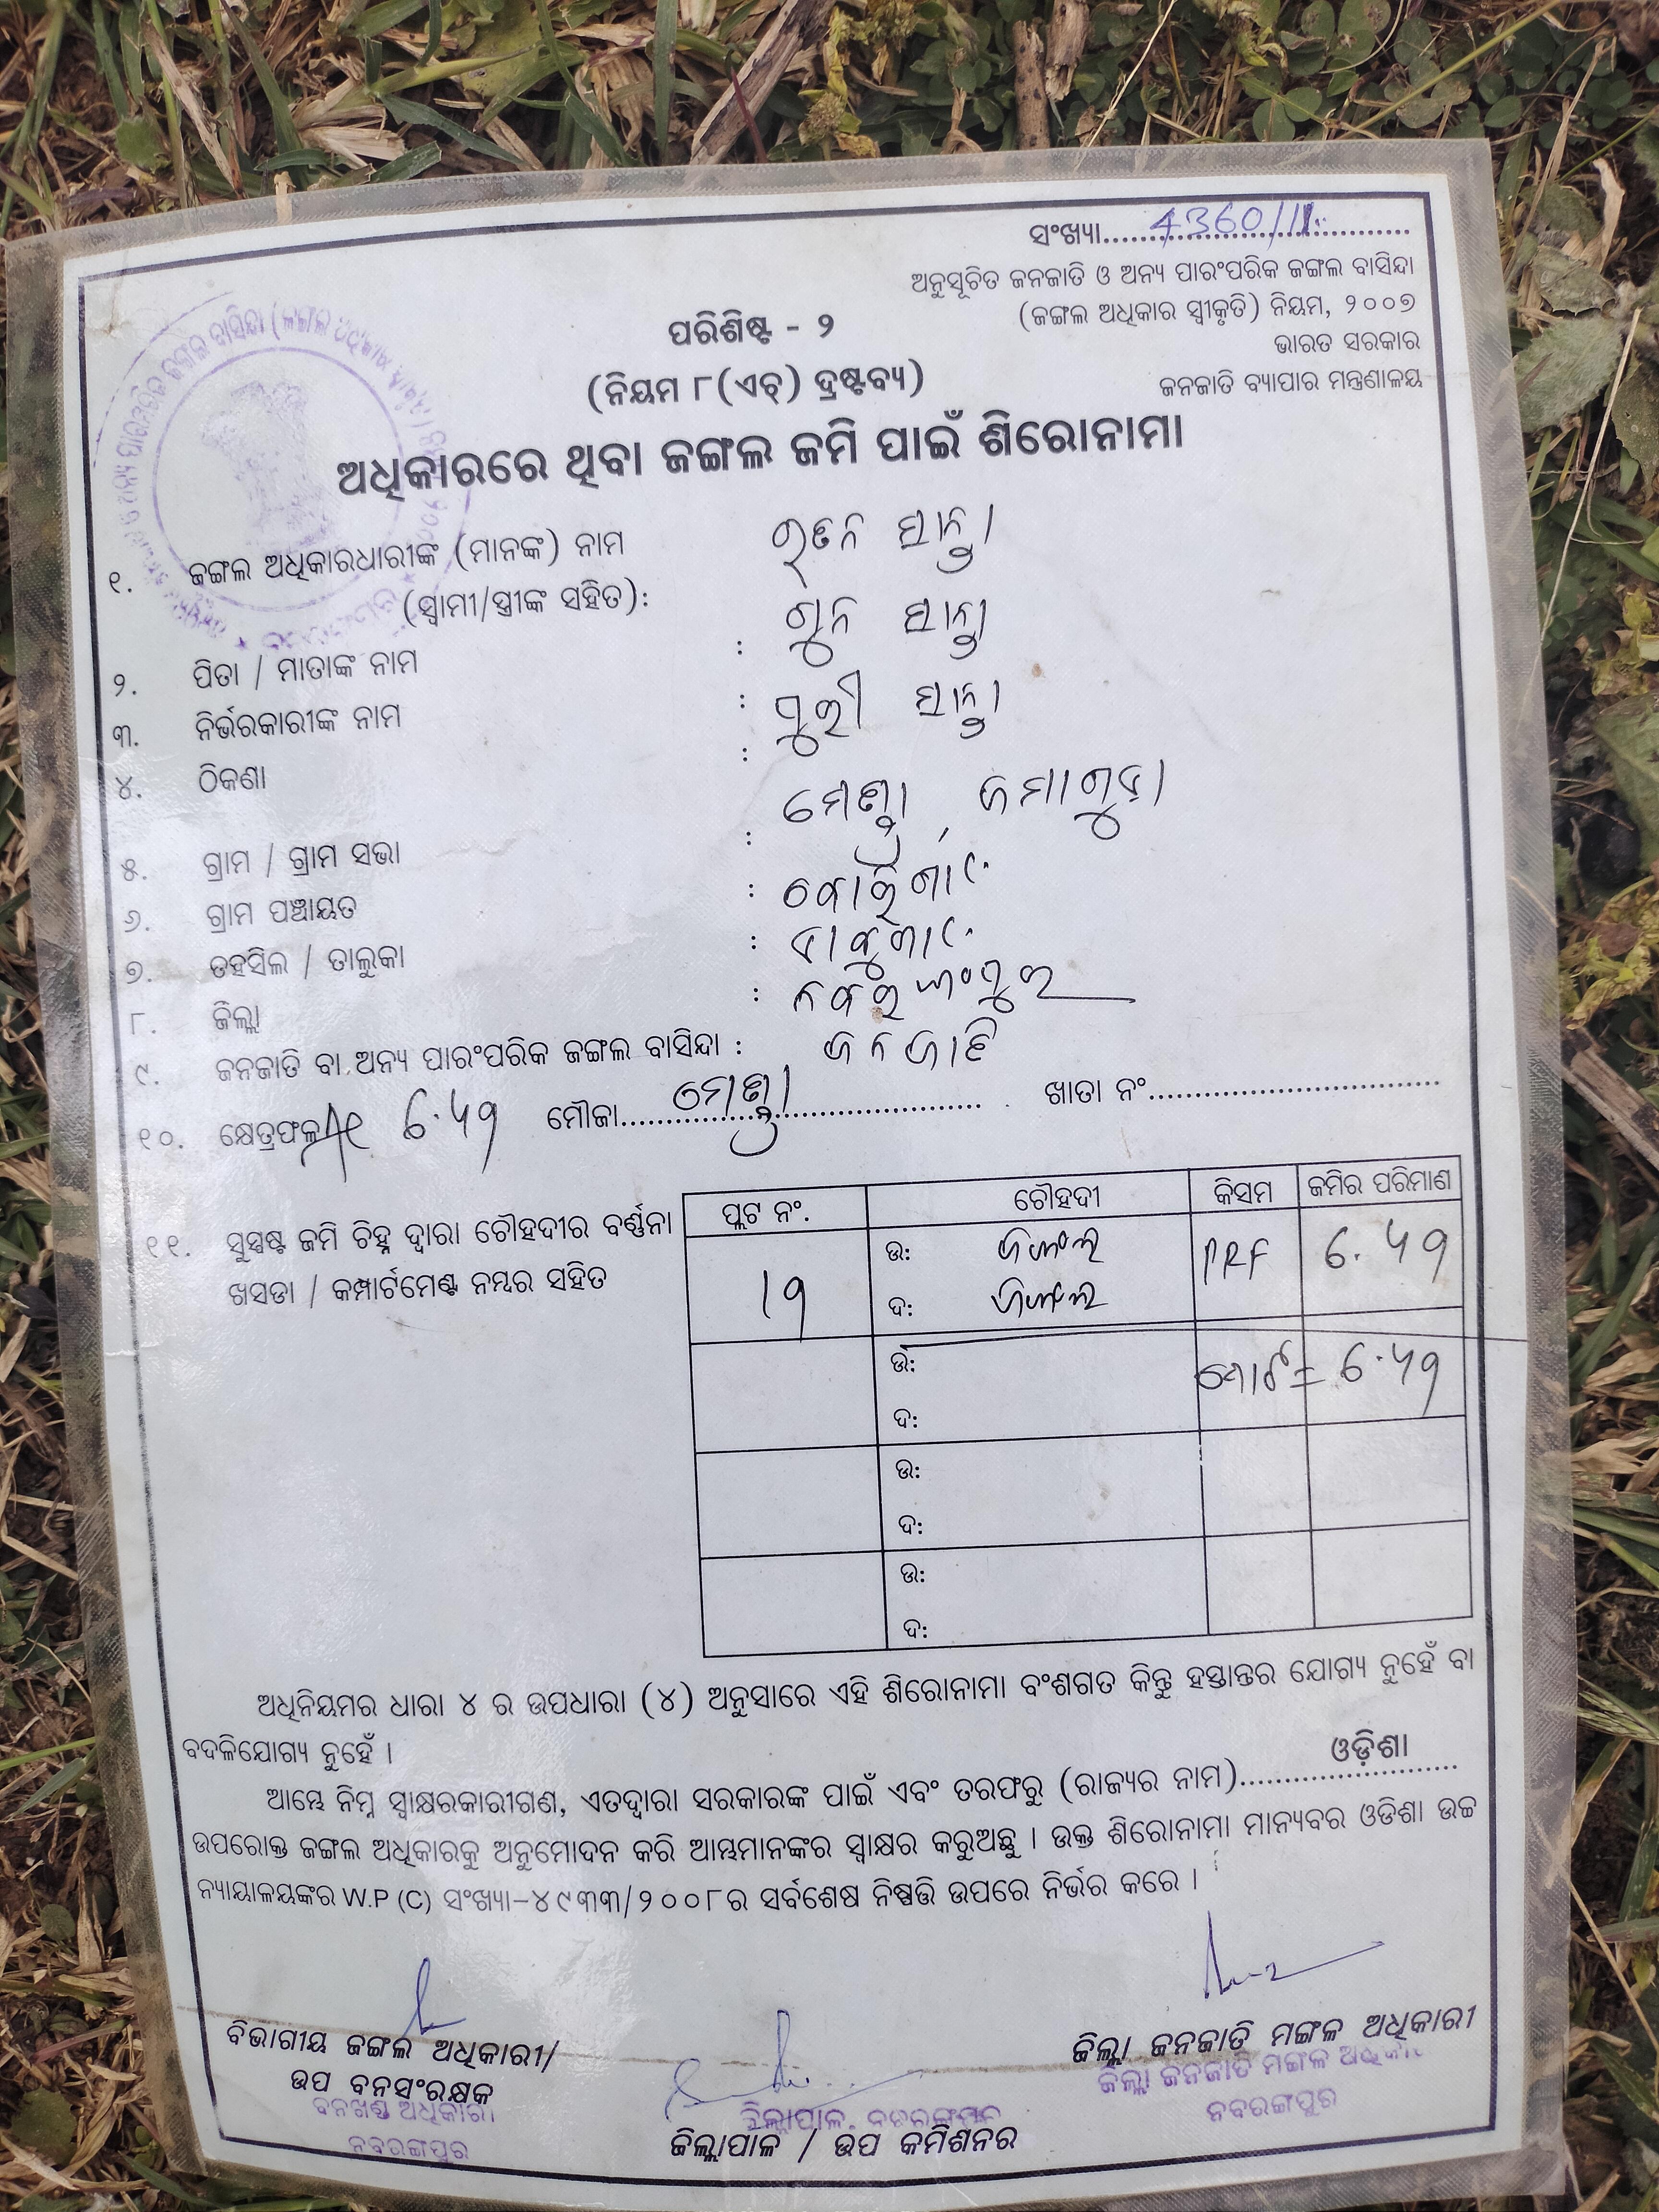 ସଂଖ୍ୟା.....4360/11.....
ଅନୁସୂଚିତ ଜନଜାତି ଓ ଅନ୍ୟ ପାରଂପରିକ ଜଙ୍ଗଲ ବାସିନ୍ଦା
(ଜଙ୍ଗଲ ଅଧିକାର ସ୍ୱୀକୃତି) ନିୟମ, ୨୦୦୭
ଭାରତ ସରକାର
ଜନଜାତି ବ୍ୟାପାର ମନ୍ତ୍ରଣାଳୟ
ପରିଶିଷ୍ଟ - ୨
(ନିୟମ ୮(ଏଚ୍) ଦ୍ରଷ୍ଟବ୍ୟ)
ଅଧିକାରରେ ଥିବା ଜଙ୍ଗଲ ଜମି ପାଇଁ ଶିରୋନାମା
୧. ଜଙ୍ଗଲ ଅଧିକାରଧାରୀଙ୍କ (ମାନଙ୍କ) ନାମ
(ସ୍ୱାମୀ/ସ୍ତ୍ରୀଙ୍କ ସହିତ):
୨. ପିତା / ମାତାଙ୍କ ନାମ :
୩. ନିର୍ଭରକାରୀଙ୍କ ନାମ :
୪. ଠିକଣା :
୫. ଗ୍ରାମ / ଗ୍ରାମ ସଭା :
୬. ଗ୍ରାମ ପଞ୍ଚାୟତ :
୭. ତହସିଲ / ତାଲୁକା :
୮. ଜିଲ୍ଲା : ନବରଙ୍ଗପୁର
୯. ଜନଜାତି ବା ଅନ୍ୟ ପାରଂପରିକ ଜଙ୍ଗଲ ବାସିନ୍ଦା : ଜନଜାତି
୧୦. କ୍ଷେତ୍ରଫଳ ୬.୪୨ ମୌଜା............ ଖାତା ନଂ............
୧୧. ସୁସ୍ପଷ୍ଟ ଜମି ଚିହ୍ନ ଦ୍ୱାରା ଚୌହଦୀର ବର୍ଣ୍ଣନା
ଖସଡା / କମ୍ପାର୍ଟମେଣ୍ଟ ନମ୍ବର ସହିତ
ପ୍ଲଟ ନଂ. ଚୌହଦୀ କିସମ ଜମିର ପରିମାଣ
ଉ: ଜଙ୍ଗଲ PRF
ଦ: ଜଙ୍ଗଲ
ଉ:
ଦ:
ଉ:
ଦ:
ଉ:
ଦ:
ଅଧିନିୟମର ଧାରା ୪ ର ଉପଧାରା (୪) ଅନୁସାରେ ଏହି ଶିରୋନାମା ବଂଶଗତ କିନ୍ତୁ ହସ୍ତାନ୍ତର ଯୋଗ୍ୟ ନୁହେଁ ବା
ବଦଳିଯୋଗ୍ୟ ନୁହେଁ ।
ଆମ୍ଭେ ନିମ୍ନ ସ୍ୱାକ୍ଷରକାରୀଗଣ, ଏତଦ୍ୱାରା ସରକାରଙ୍କ ପାଇଁ ଏବଂ ତରଫରୁ (ରାଜ୍ୟର ନାମ).....ଓଡ଼ିଶା.....
ଉପରୋକ୍ତ ଜଙ୍ଗଲ ଅଧିକାରକୁ ଅନୁମୋଦନ କରି ଆମ୍ଭମାନଙ୍କର ସ୍ୱାକ୍ଷର କରୁଅଛୁ । ଉକ୍ତ ଶିରୋନାମା ମାନ୍ୟବର ଓଡିଶା ଉଚ୍ଚ
ନ୍ୟାୟାଳୟଙ୍କର W.P (C) ସଂଖ୍ୟା-୪୯୩୩/୨୦୦୮ର ସର୍ବଶେଷ ନିଷ୍ପତ୍ତି ଉପରେ ନିର୍ଭର କରେ ।
ବିଭାଗୀୟ ଜଙ୍ଗଲ ଅଧିକାରୀ/
ଉପ ବନସଂରକ୍ଷକ
ବନଖଣ୍ଡ ଅଧିକାରୀ
ନବରଙ୍ଗପୁର
ଜିଲ୍ଲାପାଳ, ନବରଙ୍ଗପୁର
ଜିଲ୍ଲାପାଳ / ଉପ କମିଶନର
ଜିଲ୍ଲା ଜନଜାତି ମଙ୍ଗଳ ଅଧିକାରୀ
ଜିଲ୍ଲା ଜନଜାତି ମଙ୍ଗଳ ଅଧିକାରୀ
ନବରଙ୍ଗପୁର